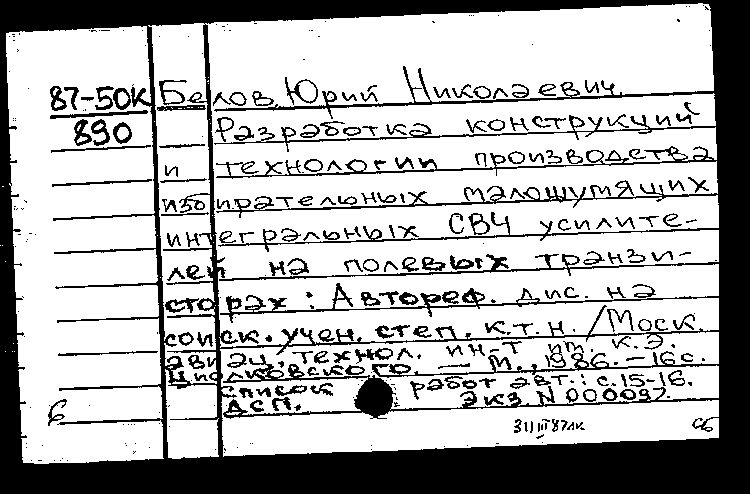 87-50К Белов, Юрий Николаевич.
890 Разработка конструкций
и технологии производства
избирательных малошумящих
интегральных СВЧ усилите-
лей на полевых транзи-
сторах : Автореф. дис. на
соиск. учен. степ. к.т.н. / Моск.
авиац. технол. ин-т им. К.Э.
Циолковского. — М., 1986. — 16 с.
Список работ авт.: с. 15-16.
ДСП. Экз. N 000037.
б
31 III 87 ЛК сб